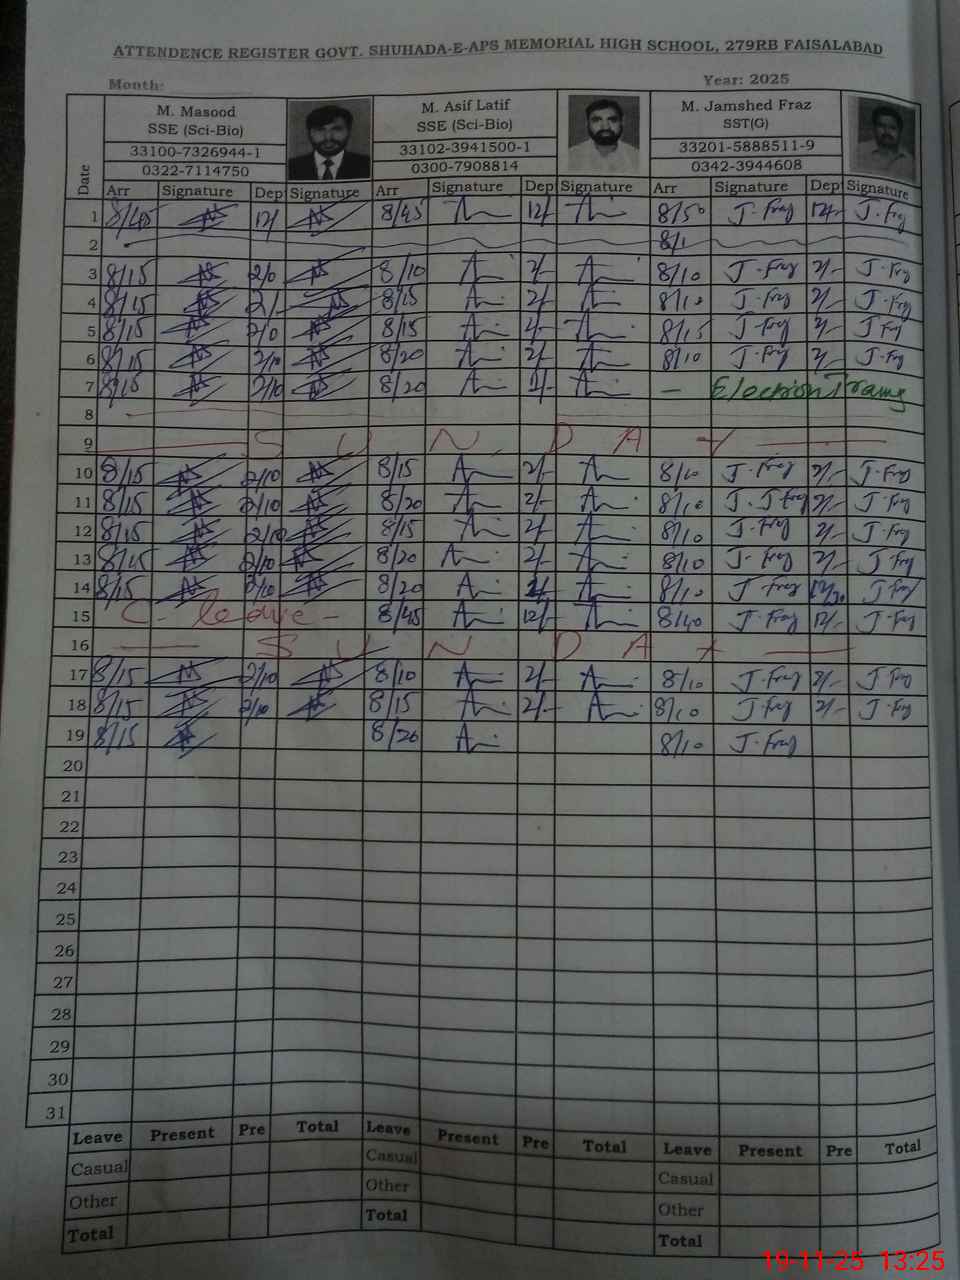 ATTENDENCE REGISTER GOVT. SHUHADA-E-APS MEMORIAL HIGH SCHOOL, 279RB FAISALABAD
Month: Year: 2025
Date
M. Masood M. Asif Latif M. Jamshed Fraz
SSE (Sci-Bio) SSE (Sci-Bio) SST(G)
33100-7326944-1 33102-3941500-1 33201-5888511-9
0322-7114750 0300-7908814 0342-3944608
Arr Signature Dep Signature Arr Signature Dep Signature Arr Signature Dep Signature
1 8/45 12/ 8/45 12/- 8/50 J-Fraz 12/- J-Fraz
2 8/1
3 8/15 2/0 8/10 2/- 8/10 J-Fraz 2/- J-Fraz
4 8/15 2/- 8/15 2/- 8/10 J-Fraz 2/- J-Fraz
5 8/15 2/0 8/15 2/- 8/15 J-Fraz 2/- J-Fraz
6 8/15 2/10 8/20 2/- 8/10 J-Fraz 2/- J-Fraz
7 8/15 2/10 8/20 - Election
8
9 SUNDAY
10 8/15 2/10 8/15 2/- 8/10 J-Fraz 2/- J-Fraz
11 8/15 2/10 8/20 2/- 8/10 J-Fraz 2/- J-Fraz
12 8/15 2/10 8/15 2/- 8/10 J-Fraz 2/- J-Fraz
13 8/15 2/10 8/20 2/- 8/10 J-Fraz 2/- J-Fraz
14 8/15 2/10 8/20 2/- 8/10 J-Fraz 12/30 J-Fraz
15 C- leave - 8/45 12/- 8/40 J-Fraz 12/- J-Fraz
16 - SUNDAY
17 8/15 2/10 8/10 2/- 8/10 J-Fraz 2/- J-Fraz
18 8/15 2/10 8/15 2/- 8/10 J-Fraz 2/- J-Fraz
19 8/15 8/20 8/10 J-Fraz
20
21
22
23
24
25
26
27
28
29
30
31
Leave Present Pre Total Leave Present Pre Total Leave Present Pre Total
Casual Casual Casual
Other Other Other
Total Total Total
19-11-25 13:25